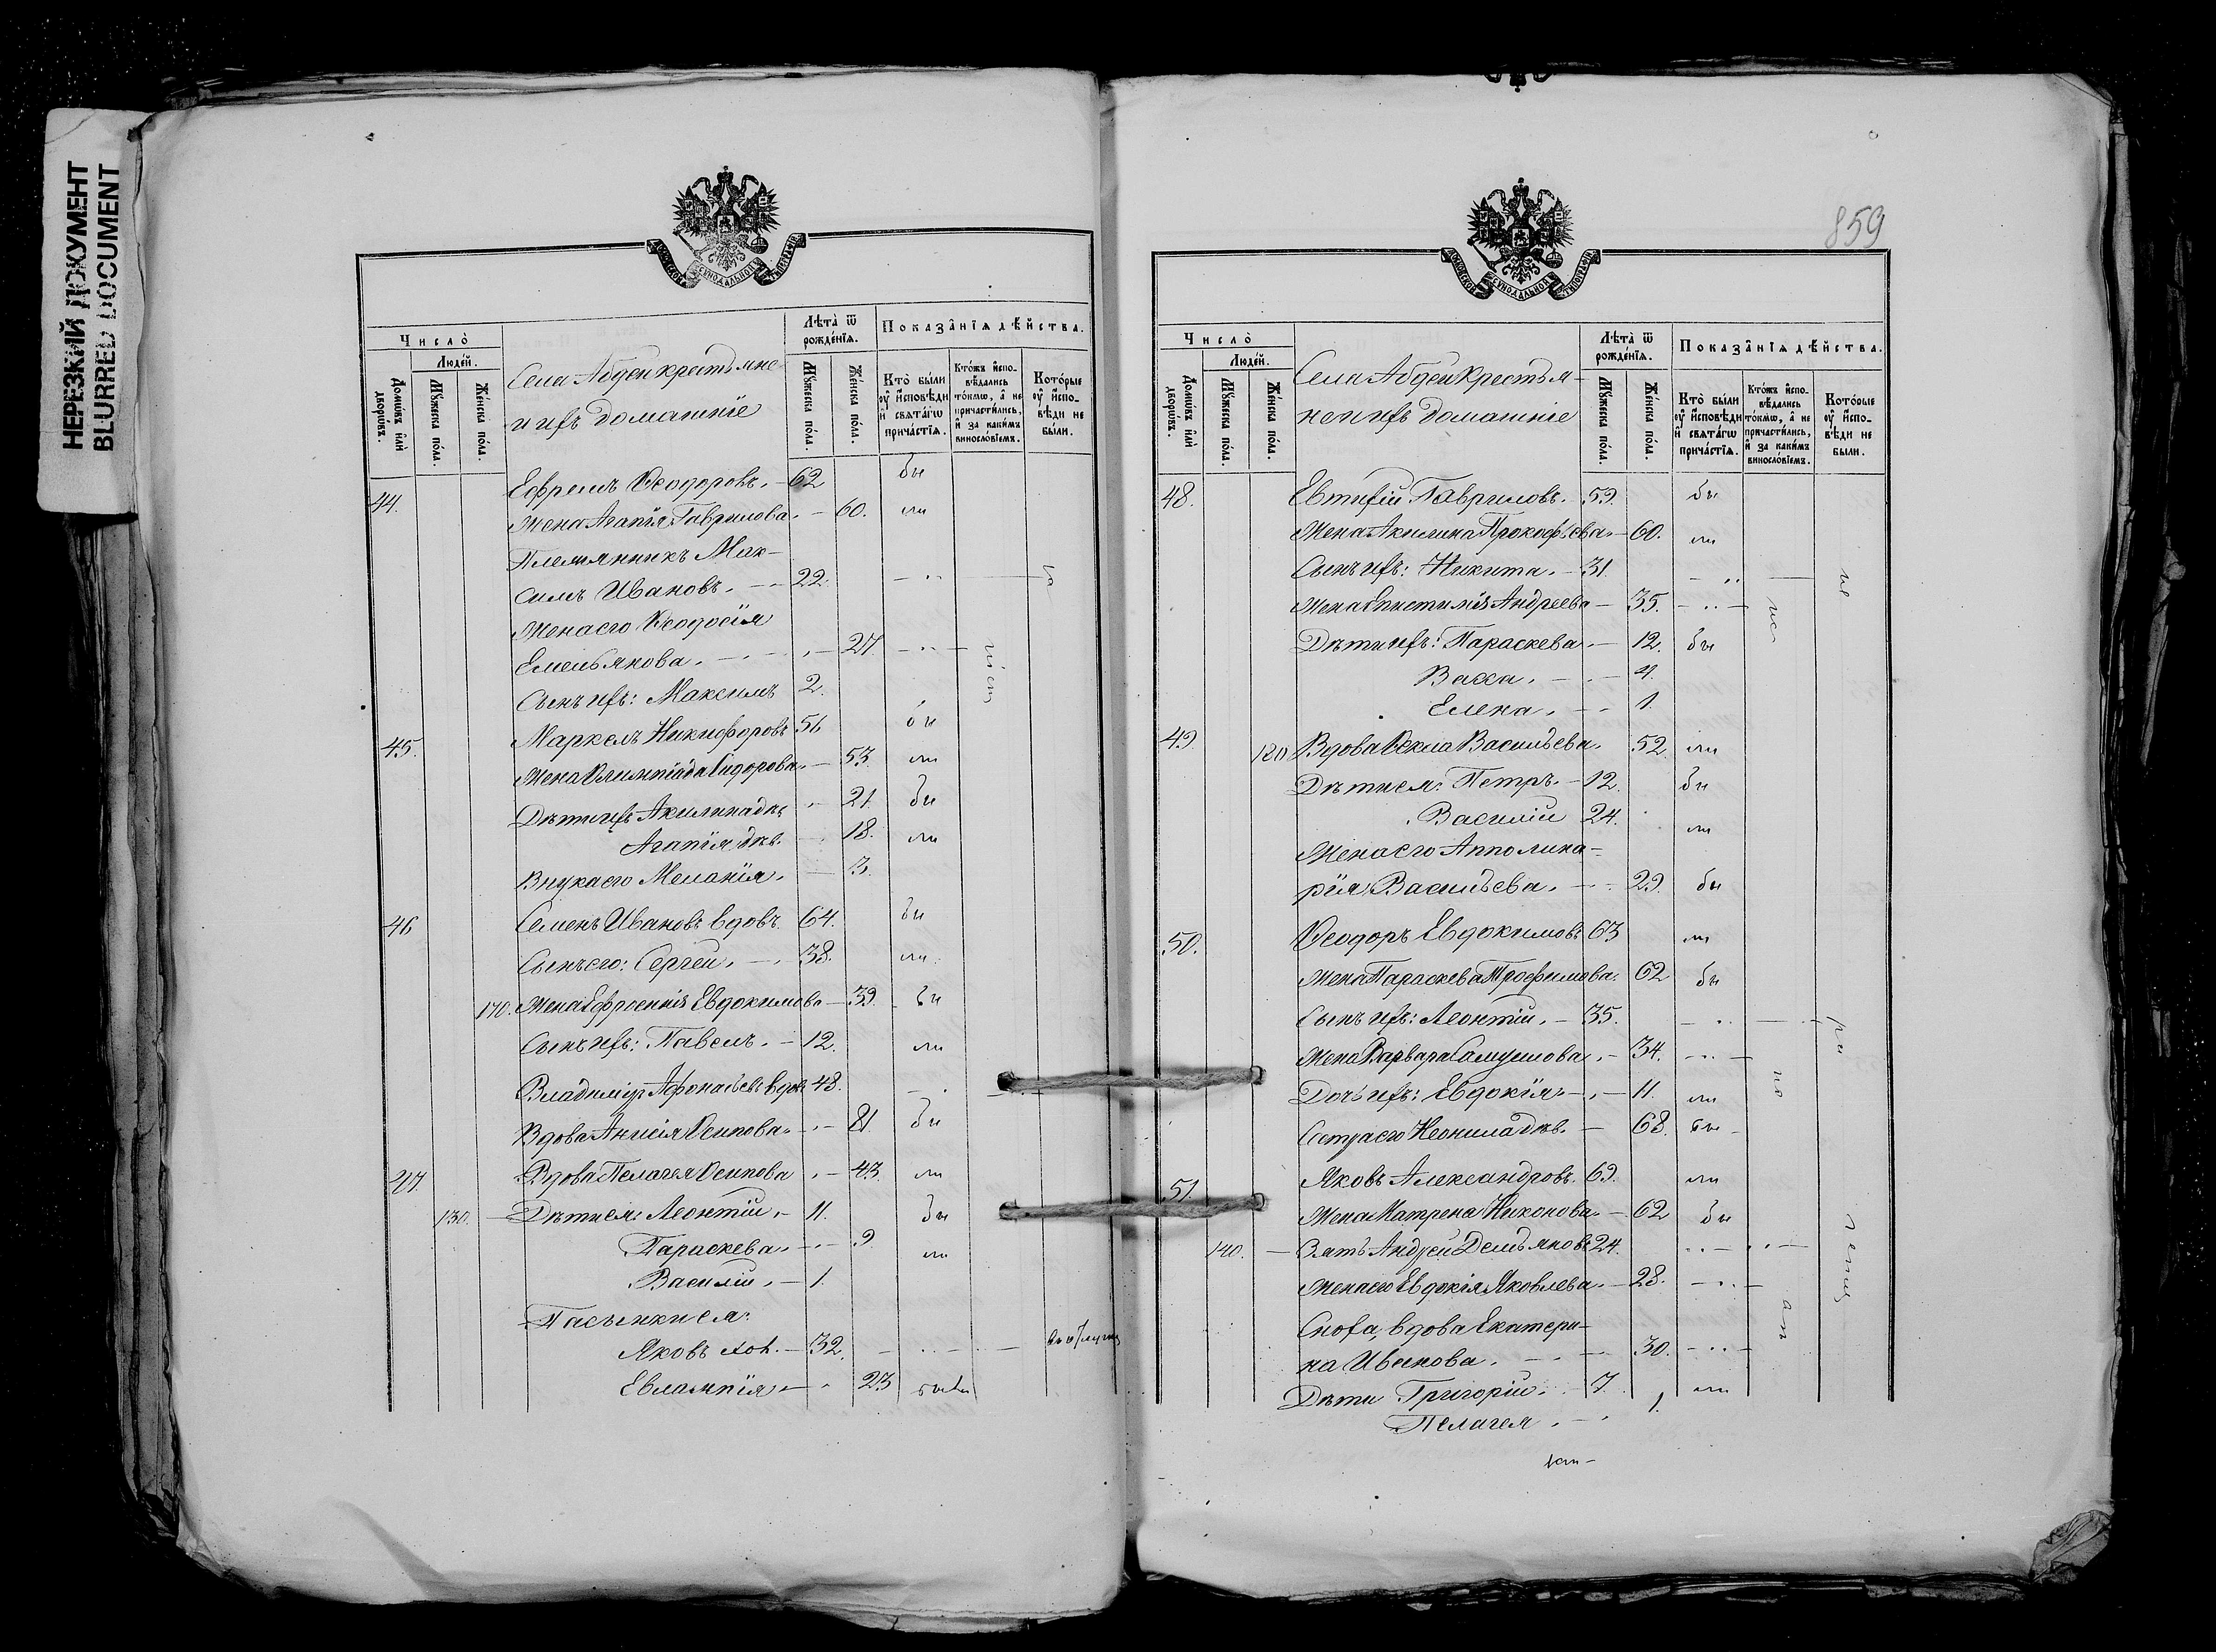 НЕРЕЗКИЙ ДОКУМЕНТ
BLURRED DOCUMENT
МОСКОВСКОЙ СѴНОДАЛЬНОЙ ТѴПОГРАФІИ
Число̀
Людей.
Домѡвъ илѝ дворѡвъ.
Мꙋжеска пола.
Женска пола.
Села Абдеи крестьяне
и ихъ домашніе
Лѣта̀ ѿ рожденїѧ.
Мꙋжеска пола.
Женска пола.
Показанїѧ дѣйства.
Кто̀ были оу̓ исповѣди и свѧтагѡ причастїѧ.
Ктожъ исповѣдались токмѡ, а не причастились, и за какимъ винословїемъ.
Которые оу̓ исповѣди не были.
44. Ефремъ Ѳеодоровъ. — 62 бы
Жена Агапія Гаврилова. — 60. ли
Племянникъ Мак-
симъ Ивановъ. — 22.
Жена его Ѳеодосія
Емельянова. — 27.
Сынъ ихъ: Максимъ 2.
45. Маркелъ Никифоровъ 56 бы
Жена Олимпіада Сидорова. — 53. ли
Дѣти ихъ Акилина дѣв. — 21. бы
Агапія дѣв. — 18. ли
Внука его Меланія. — 3.
46 Семенъ Ивановъ вдовъ. 64. бы
Сынъ его: Сергей. — 38. ли
170. Жена Ефросинія Евдокимова — 39. бы
Сынъ ихъ: Павелъ. — 12. ли
Владиміръ Афонасьевъ вдов. 48.
Вдова Анисія Осипова. — 81. бы
47. Вдова Пелагея Осипова — 43. ли
130. — Дѣти ея: Леонтій. — 11. бы
Параскева. — 9. ли
Василій. — 1.
Пасынки ея:
Яковъ хол. — 32.
Евлампія — 23 были
859
МОСКОВСКОЙ СѴНОДАЛЬНОЙ ТѴПОГРАФІИ
Число̀
Людей.
Домѡвъ илѝ дворѡвъ.
Мꙋжеска пола.
Женска пола.
Села Абдеи крестья-
не и ихъ домашніе
Лѣта̀ ѿ рожденїѧ.
Мꙋжеска пола.
Женска пола.
Показанїѧ дѣйства.
Кто̀ были оу̓ исповѣди и свѧтагѡ причастїѧ.
Ктожъ исповѣдались токмѡ, а не причастились, и за какимъ винословїемъ.
Которые оу̓ исповѣди не были.
48. Евтихій Гавриловъ. 59. бы
Жена Акилина Прокофьева. — 60. ли
Сынъ ихъ: Никита. — 31.
Жена Епистимія Андреева — 35.
Дѣти ихъ: Параскева. — 12. бы
Васса. — 4.
Елена. — 1.
49. 180 Вдова Ѳекла Васильева. 52. ли
Дѣти ея: Петръ. — 12. бы
Василій 24. ли
Жена его Апполина-
рія Васильева. — 29. бы
50. Ѳеодоръ Евдокимовъ 63 ли
Жена Параскева Трофимова. 62 бы
Сынъ ихъ: Леонтій. — 35.
Жена Варвара Самуилова. — 34.
Дочь ихъ: Евдокія. — 11. ли
Сестра его Неонила дѣв. — 68. бы
51. Яковъ Александровъ. 69. ли
Жена Матрена Никонова. — 62 бы
140. — Зять Андрей Демьяновъ 24.
Жена его Евдокія Яковлева. — 28.
Сноха, вдова Екатери-
на Иванова. — 30.
Дѣти Григорій. — 7. ли
Пелагея. — 1.